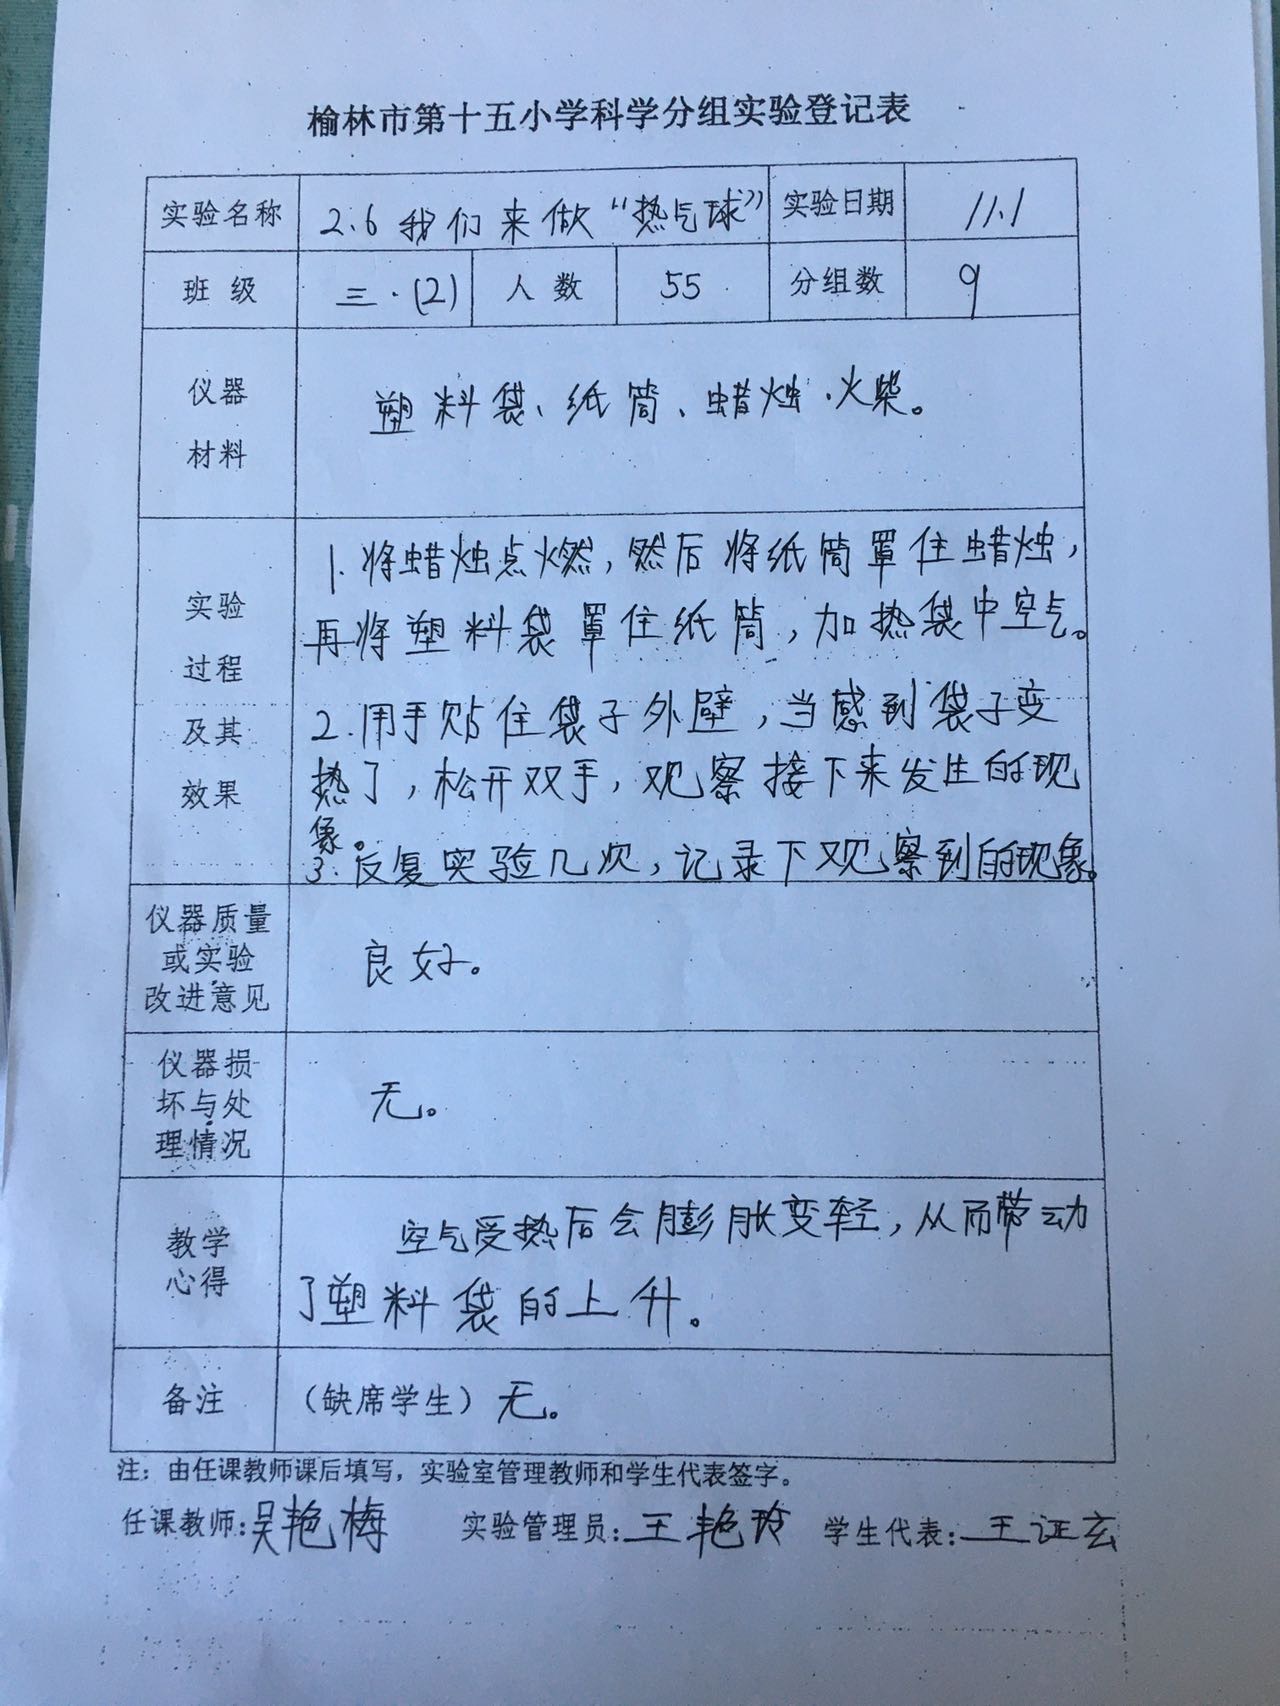 榆林市第十五小学科学分组实验登记表
实验名称 2.6 我们来做“热气球” 实验日期 11.1
班级 三.(2) 人数 55 分组数 9
仪器
材料
塑料袋、纸筒、蜡烛、火柴。
实验
过程
及其
效果
1.将蜡烛点燃,然后将纸筒罩住蜡烛,
再将塑料袋罩住纸筒,加热袋中空气。
2.用手贴住袋子外壁,当感到袋子变
热了,松开双手,观察接下来发生的现
象。
3.反复实验几次,记录下观察到的现象。
仪器质量
或实验
改进意见
良好。
仪器损
坏与处
理情况
无。
教学
心得
空气受热后会膨胀变轻,从而带动
了塑料袋的上升。
备注 (缺席学生) 无。
注:由任课教师课后填写,实验室管理教师和学生代表签字。
任课教师:吴艳梅 实验管理员:王艳玲 学生代表:王证玄